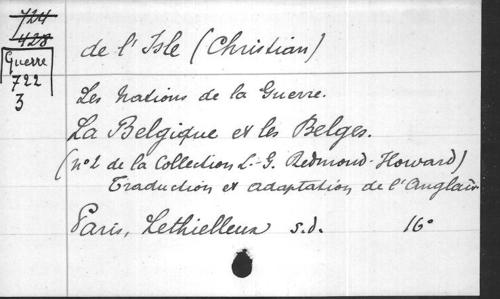 724
428
Guerre
722
3
de l'Isle (Christian)
Les Nations de la Guerre.
La Belgique et les Belges.
(n° 2 de la Collection L.-G. Redmond-Howard)
Traduction et adaptation de l'Anglais
Paris, Lethielleux s.d. 16°